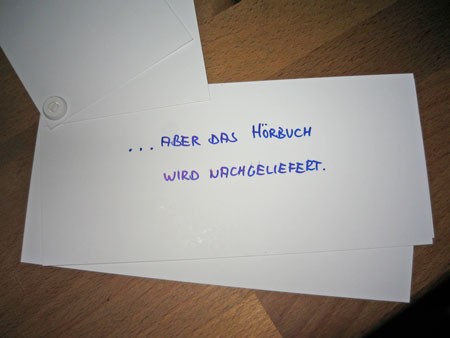 ...ABER DAS HÖRBUCH
WIRD NACHGELIEFERT.